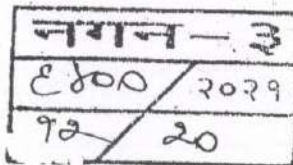 नगन - ३
६४०० / २०२१
१२ / २०